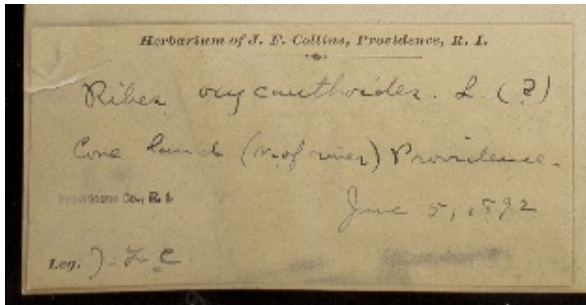 Herbarium of J. F. Collins, Providence, R. I.
Ribes oxycanthoides. L. (?)
Cove lands (N. of river) Providence.
Providence Co., R. I.
June 5, 1892
Leg. J. F. C.